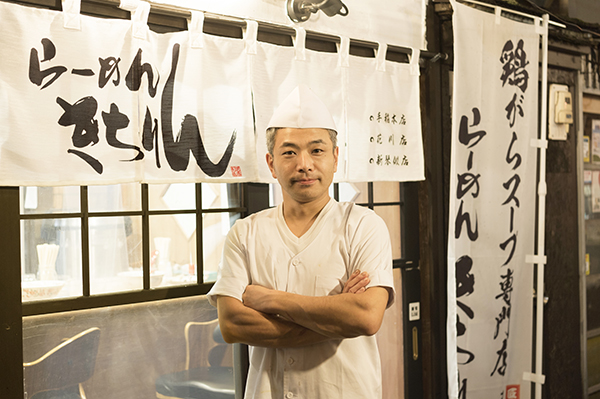 らーめん
きちりん
●手稲本店
●花川店
●新琴似店
鶏がらスープ専門店
らーめん きちりん